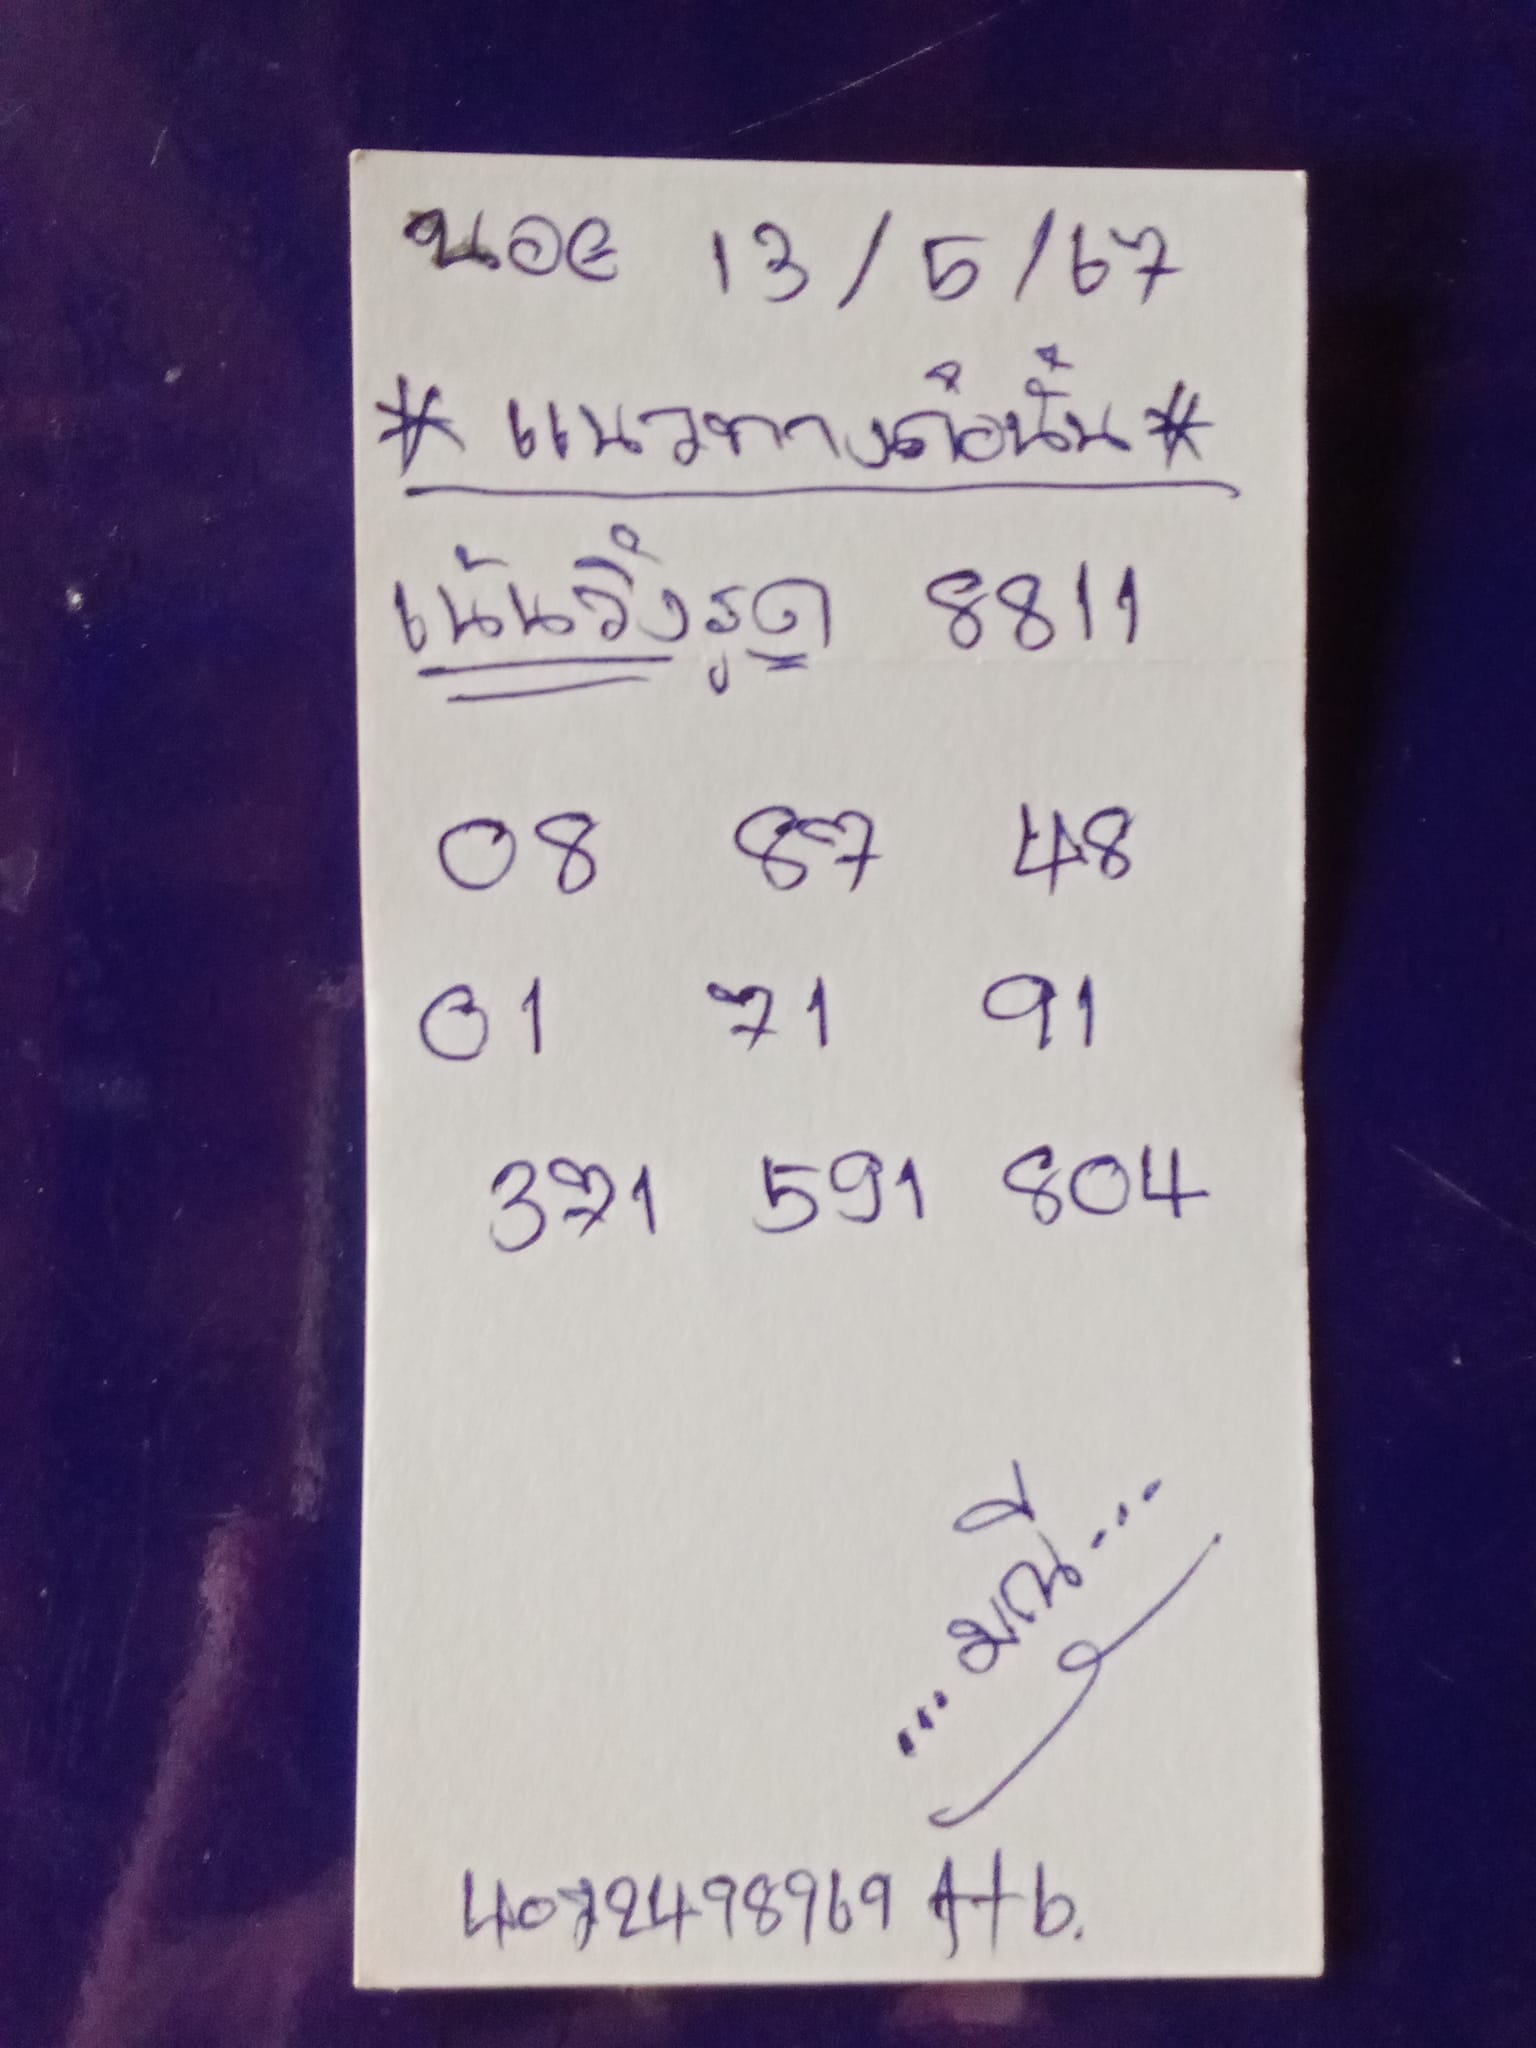 นอย 13/5/67
* แนวทางคือนั้น *
เน้นวิ่งรูด 8811
08 87 48
01 71 91
371 591 804
...มณี...
4072498969 Att b.